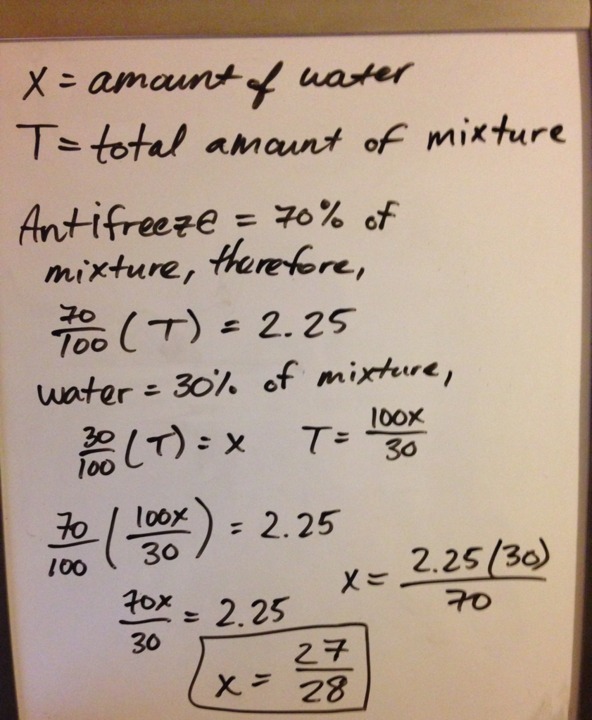 X = amount of water
T = total amount of mixture
Antifreeze = 70% of
mixture, therefore,
70/100 (T) = 2.25
water = 30% of mixture,
30/100 (T) = x   T = 100x/30
70/100 (100x/30) = 2.25
x = 2.25(30)/70
70x/30 = 2.25
x = 27/28